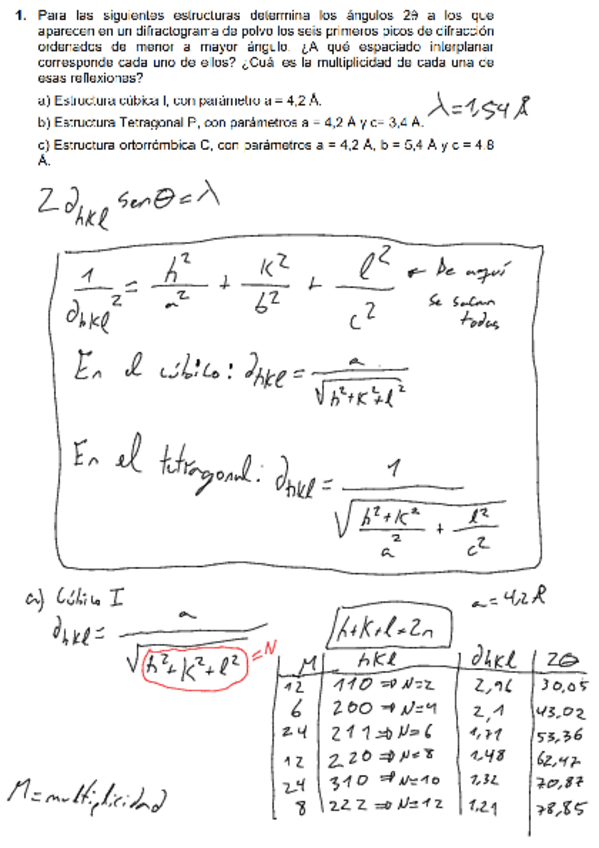 1. Para las siguientes estructuras determina los ángulos 2θ a los que
aparecen en un difractograma de polvo los seis primeros picos de difracción
ordenados de menor a mayor ángulo. ¿A qué espaciado interplanar
corresponde cada uno de ellos? ¿Cuál es la multiplicidad de cada una de
esas reflexiones?
a) Estructura cúbica I, con parámetro a = 4,2 Å.
λ=1,54 Å
b) Estructura Tetragonal P, con parámetros a = 4,2 Å y c= 3,4 Å.
c) Estructura ortorrómbica C, con parámetros a = 4,2 Å, b = 5,4 Å y c = 4.8
Å.
2 dhkl senθ = λ
1/dhkl² = h²/a² + k²/b² + l²/c² ← De aquí
se sacan
todas
En el cúbico: dhkl = a/√(h²+k²+l²)
En el tetragonal: dhkl = 1/√((h²+k²)/a² + l²/c²)
a) Cúbico I
a = 4,2 Å
dhkl = a/√(h²+k²+l²) = N
h+k+l=2n
M hkl dhkl 2θ
12 110 ⇒ N=2 2,96 30,05
6 200 ⇒ N=4 2,1 43,02
24 211 ⇒ N=6 1,71 53,36
12 220 ⇒ N=8 1,48 62,47
24 310 ⇒ N=10 1,32 70,87
8 222 ⇒ N=12 1,21 78,85
M = multiplicidad